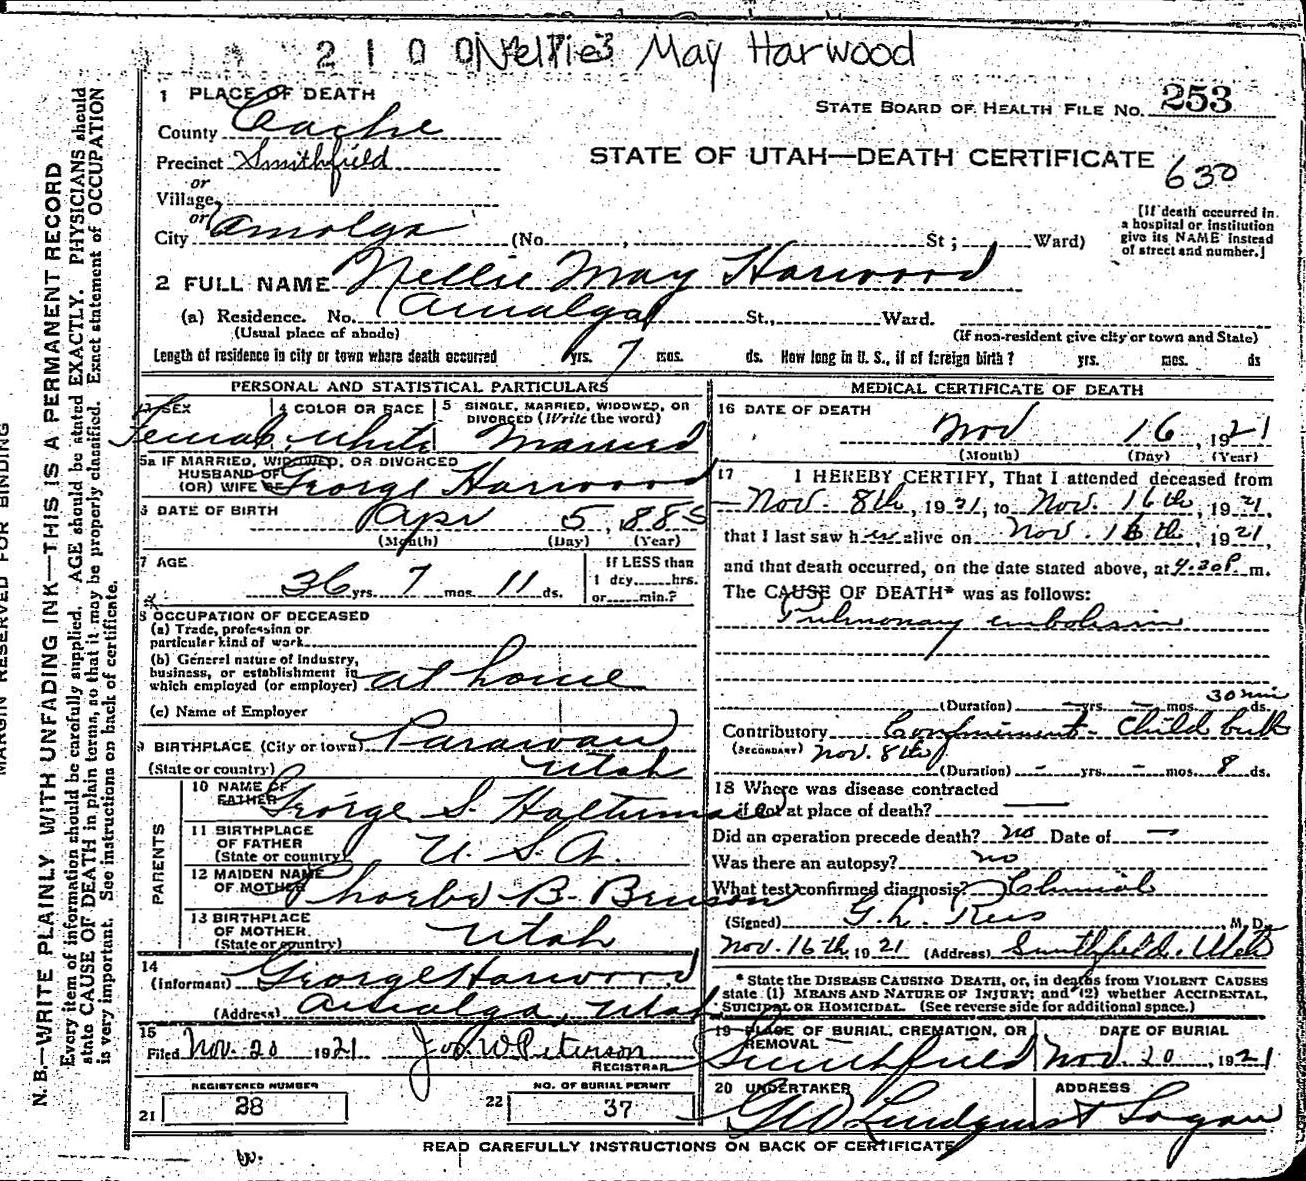 2 1 0 0 Nellie May Harwood
1 PLACE OF DEATH
STATE BOARD OF HEALTH FILE NO. 253
County Cache
Precinct Smithfield
STATE OF UTAH—DEATH CERTIFICATE
630
or
Village
or
City Amalga (No. , St; Ward)
[If death occurred in a hospital or institution give its NAME instead of street and number.]
2 FULL NAME Nellie May Harwood
(a) Residence. No. Amalga St., Ward.
(Usual place of abode) (If non-resident give city or town and State)
Length of residence in city or town where death occurred yrs. 7 mos. ds. How long in U. S., if of foreign birth? yrs. mos. ds
PERSONAL AND STATISTICAL PARTICULARS
3 SEX Female
4 COLOR OR RACE White
5 SINGLE, MARRIED, WIDOWED, OR DIVORCED (Write the word) Married
5a IF MARRIED, WIDOWED, OR DIVORCED
HUSBAND OF
(OR) WIFE OF George Harwood
6 DATE OF BIRTH Apr 5, 1885
(Month) (Day) (Year)
7 AGE
36 yrs. 7 mos. 11 ds.
If LESS than
1 day hrs.
or min.?
8 OCCUPATION OF DECEASED
(a) Trade, profession or
particular kind of work
(b) General nature of industry,
business, or establishment in
which employed (or employer) at home
(c) Name of Employer
9 BIRTHPLACE (City or town) Parawan
(State or country) Utah
PARENTS
10 NAME OF
FATHER George S. Halterman
11 BIRTHPLACE
OF FATHER
(State or country) U. S. A.
12 MAIDEN NAME
OF MOTHER Phoebe B. Benson
13 BIRTHPLACE
OF MOTHER.
(State or country) Utah
14
(Informant) George Harwood
(Address) Amalga, Utah
15
Filed Nov. 20 1921 Jos W Peterson
REGISTRAR
REGISTERED NUMBER
21 28
NO. OF BURIAL PERMIT
22 37
MEDICAL CERTIFICATE OF DEATH
16 DATE OF DEATH
Nov 16, 1921
(Month) (Day) (Year)
17 I HEREBY CERTIFY, That I attended deceased from
Nov. 8th, 1921, to Nov. 16th, 1921,
that I last saw her alive on Nov. 16th, 1921,
and that death occurred, on the date stated above, at 4.30P. m.
The CAUSE OF DEATH* was as follows:
Pulmonary embolism
30 min
(Duration) — yrs. — mos. ds.
Contributory Confinement - Child birth
(SECONDARY) Nov. 8th
(Duration) - yrs. - mos. 8 ds.
18 Where was disease contracted
if not at place of death?
Did an operation precede death? no Date of —
Was there an autopsy? no
What test confirmed diagnosis? Clinical
(Signed) G. L. Rees M. D.
Nov. 16th, 1921 (Address) Smithfield, Utah
* State the DISEASE CAUSING DEATH, or, in deaths from VIOLENT CAUSES
state (1) MEANS AND NATURE OF INJURY; and (2) whether ACCIDENTAL,
SUICIDAL OR HOMICIDAL. (See reverse side for additional space.)
19 PLACE OF BURIAL, CREMATION, OR
REMOVAL
Smithfield
DATE OF BURIAL
Nov. 20, 1921
20 UNDERTAKER
Geo Lindquist
ADDRESS
Logan
READ CAREFULLY INSTRUCTIONS ON BACK OF CERTIFICATE
MARGIN RESERVED FOR BINDING
N. B.—WRITE PLAINLY WITH UNFADING INK—THIS IS A PERMANENT RECORD
Every item of information should be carefully supplied. AGE should be stated EXACTLY. PHYSICIANS should
state CAUSE OF DEATH in plain terms, so that it may be properly classified. Exact statement of OCCUPATION
is very important. See instructions on back of certificate.